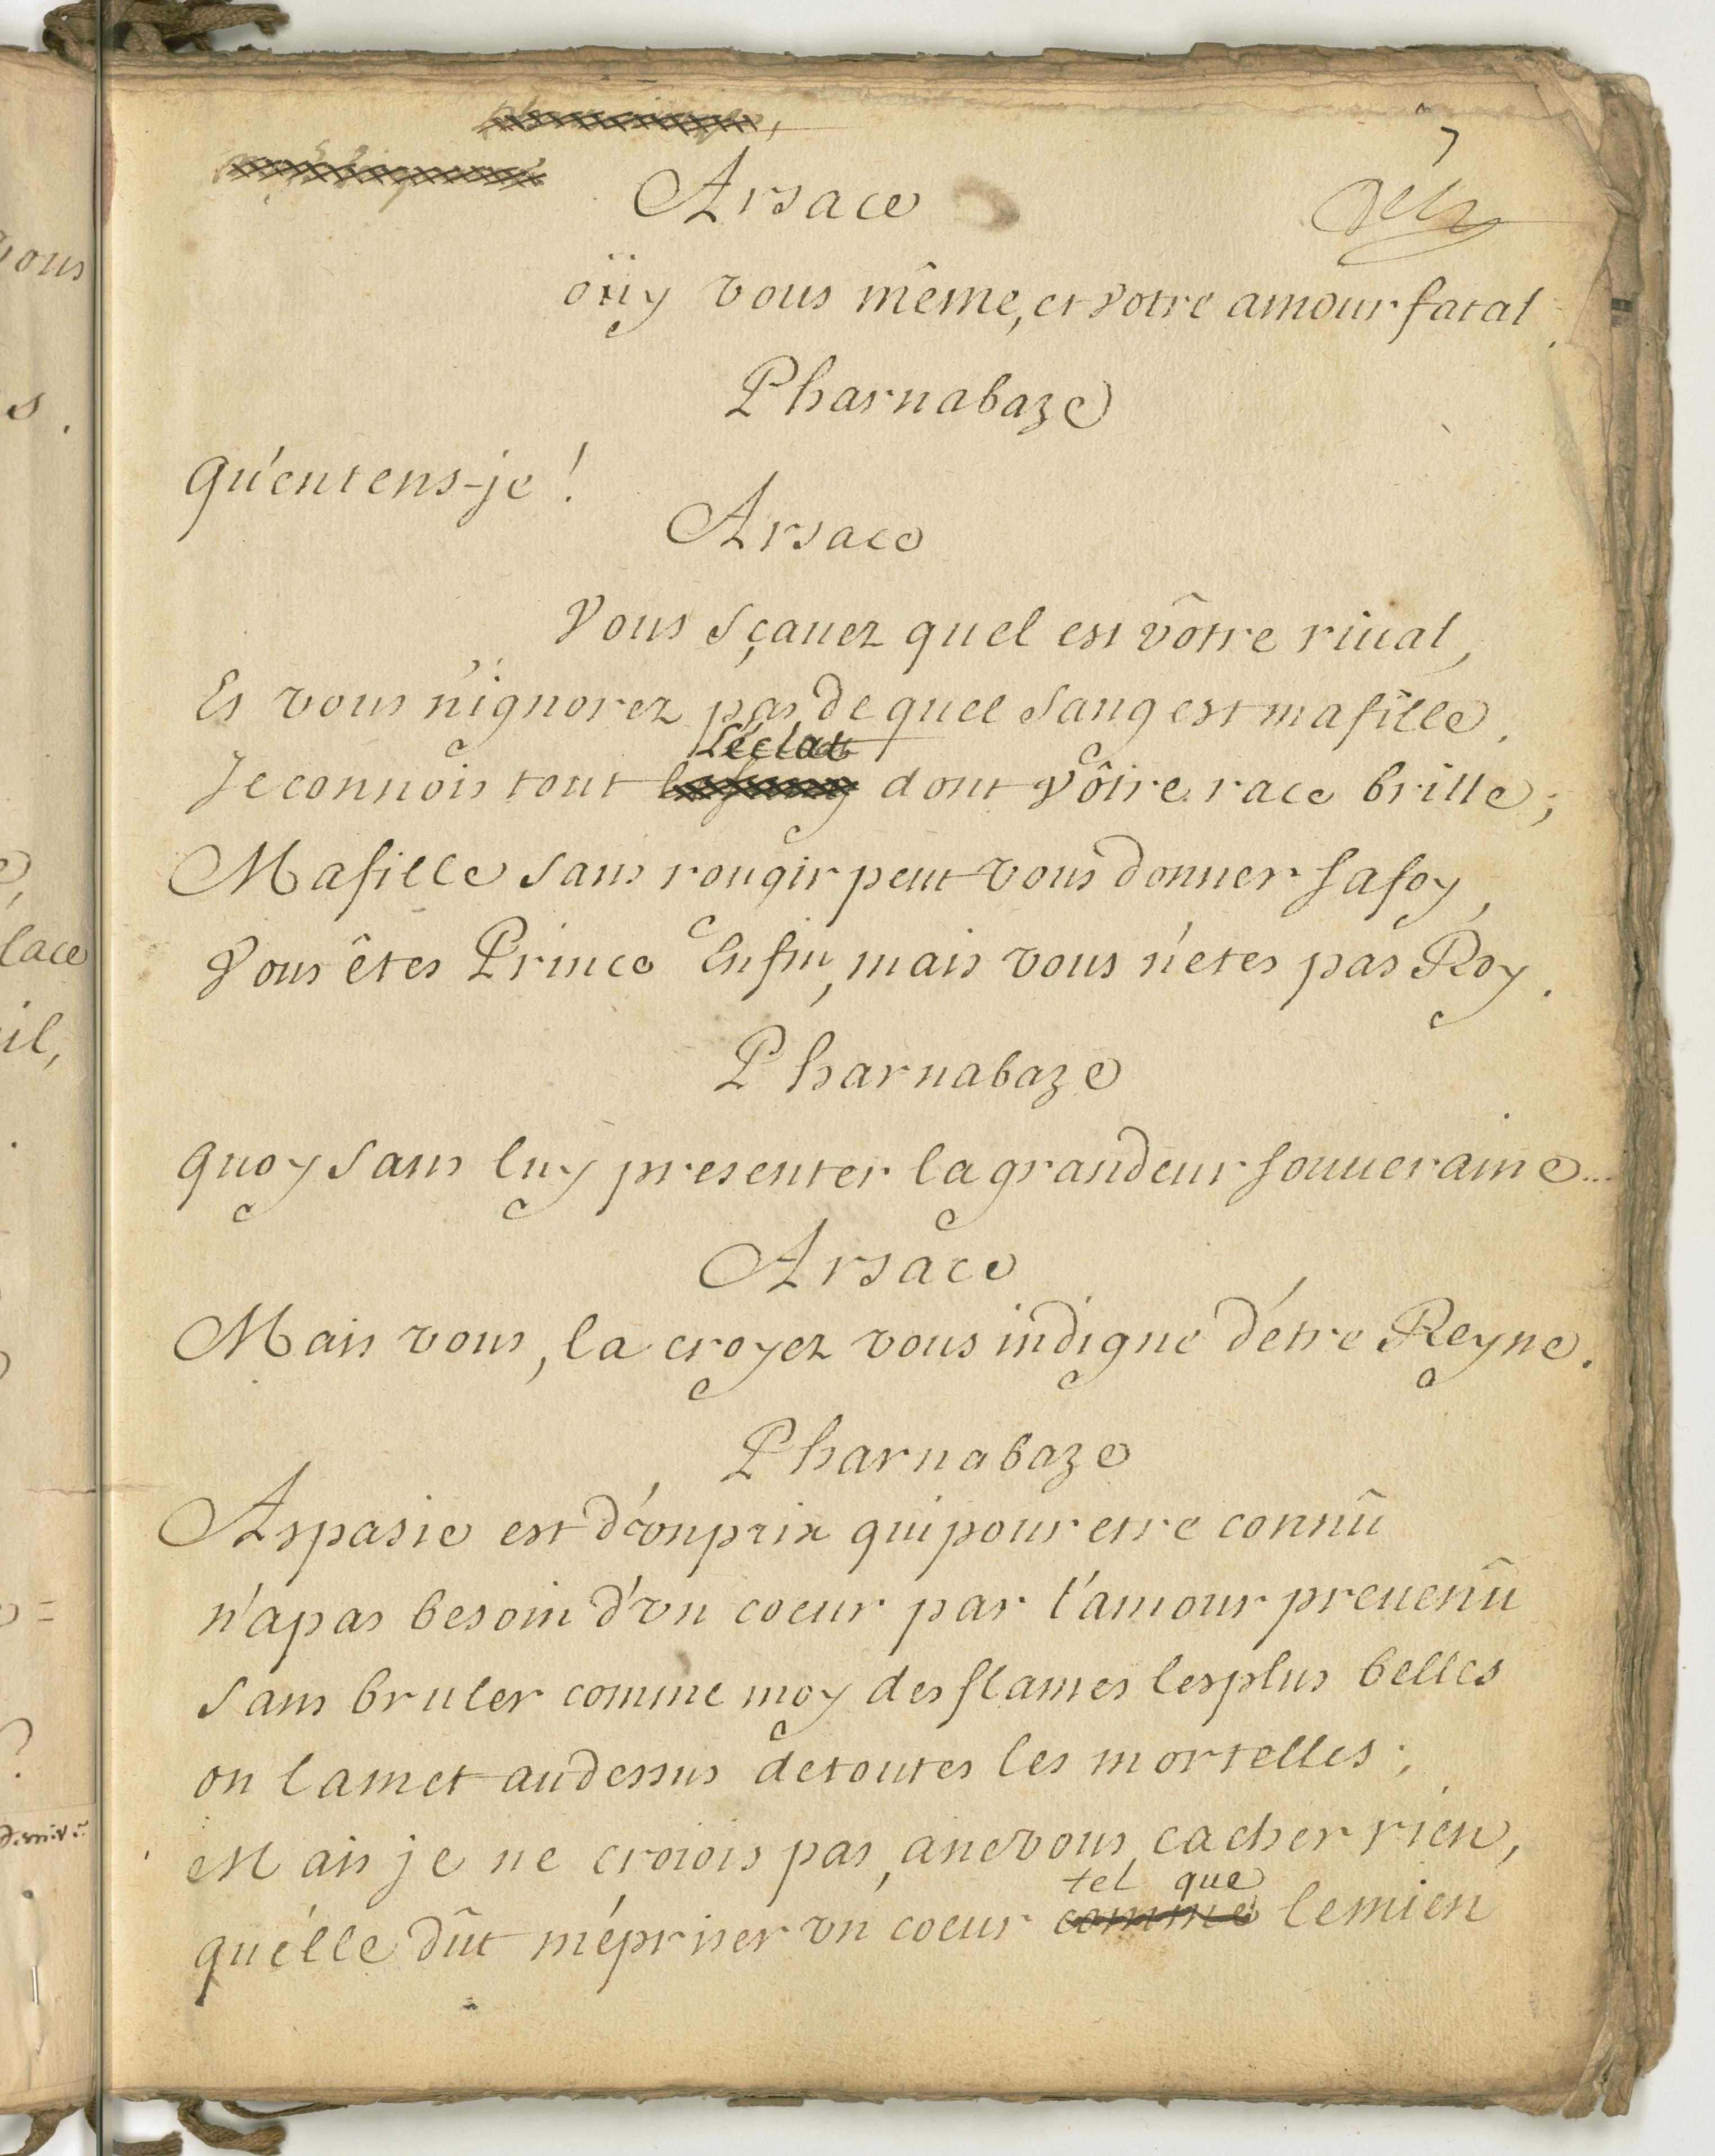 7
Arsace
oüy vous même, et votre amour fatal.
Pharnabaze
Qu'entens-je !
Arsace
Vous sçauez quel est vôtre riual,
Et vous n'ignorez pas de quel sang est ma fille.
L'éclat
Je connois tout dont vôtre race brille;
Ma fille sans rougir peut vous donner sa foy,
Vous êtes Prince Enfin, mais vous n'etes pas Roy.
Pharnabaze
Quoy sans luy presenter la grandeur souueraine...
Arsace
Mais vous, la croyez vous indigne d'étre Reyne.
Pharnabaze
Aspasie est d'vn prix qui pour etre connû
n'a pas besoin d'vn coeur par l'amour preuenû
sans bruler comme moy des flames les plus belles
on la met au dessus de toutes les mortelles;
Mais je ne croiois pas, a ne vous cacher rien,
tel que
qu'elle dût mépriser vn coeur comme le mien
vous
s.
lace
il,
?